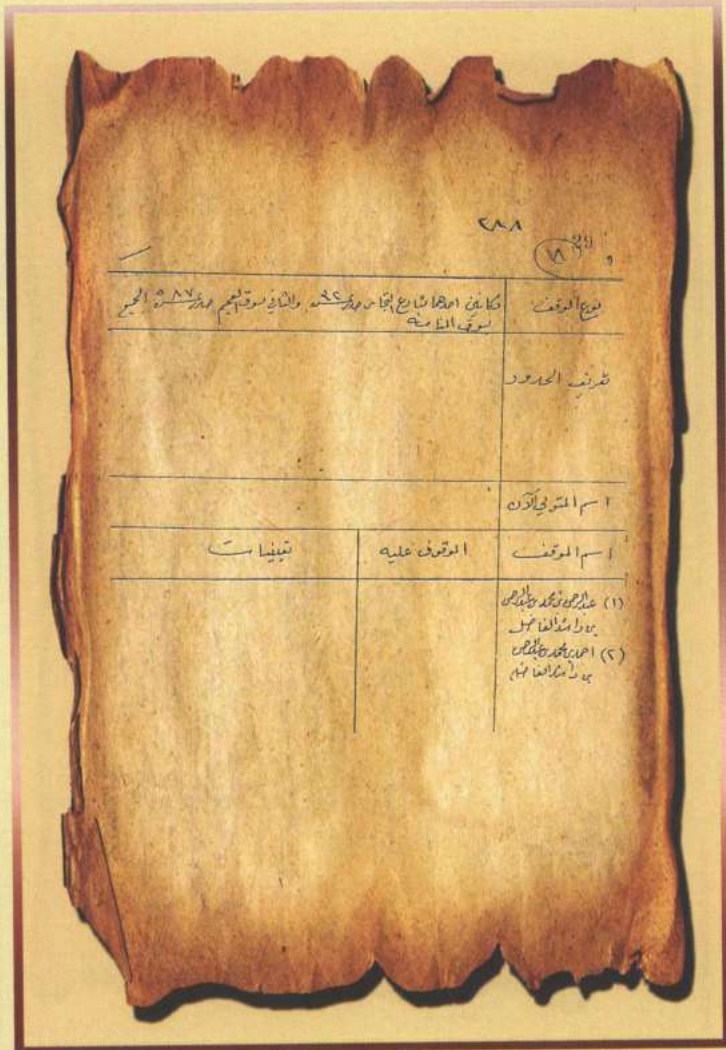 ٢٨٨
39
نوع الوقف دكانين احدهما بشارع التجار والثاني بسوق العجم الجميع
بسوق المنامه
تعريف الحدود
اسم المتولي الآن
اسم الموقف الموقوف عليه تعيينات
(١) عبدالرحمن بن محمد بن عبدالرحمن
بن راشد الفاضل
(٢) احمد بن محمد بن عبدالرحمن
بن راشد الفاضل